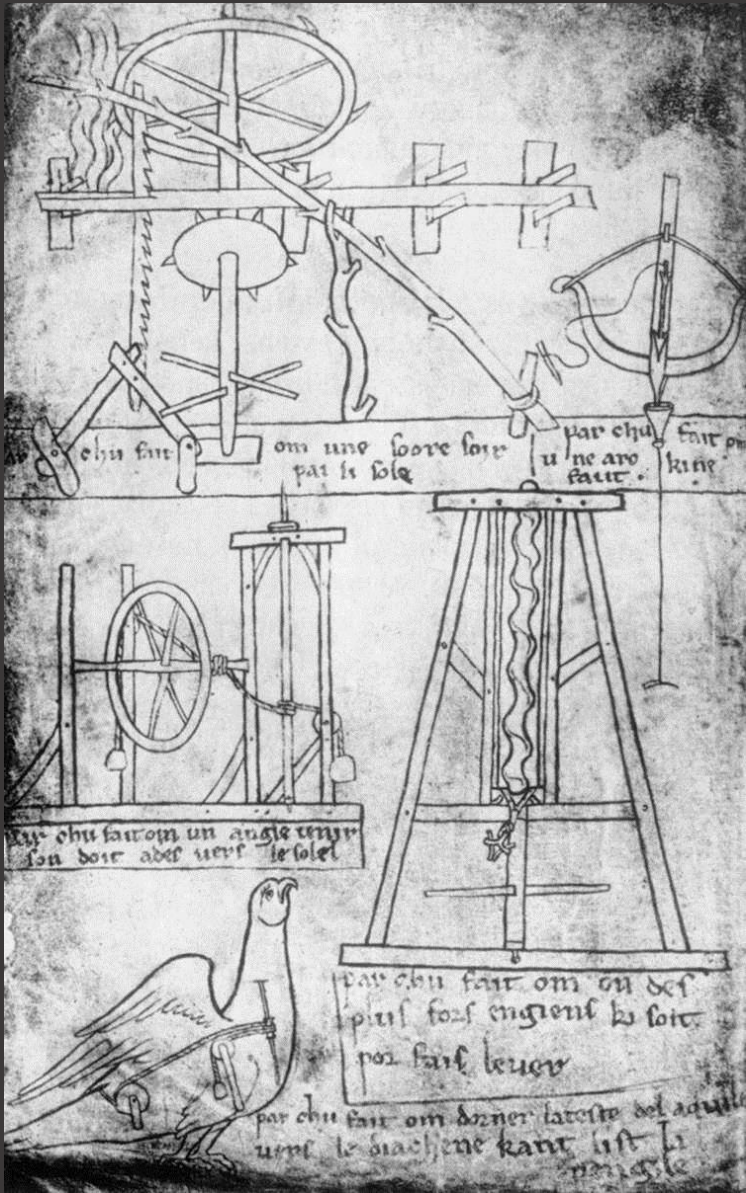 ar chu fait om une soore soir
par li sole
par chu fait om
u ne arc kine
faut .
Par chu fait om un angle tenir
son doit ades vers le solel
par chu fait om on des
plus fors engiens ki soit
por fais lever
par chu fait om dorner lateste del aquile
vers le diachene kant list li
vangile